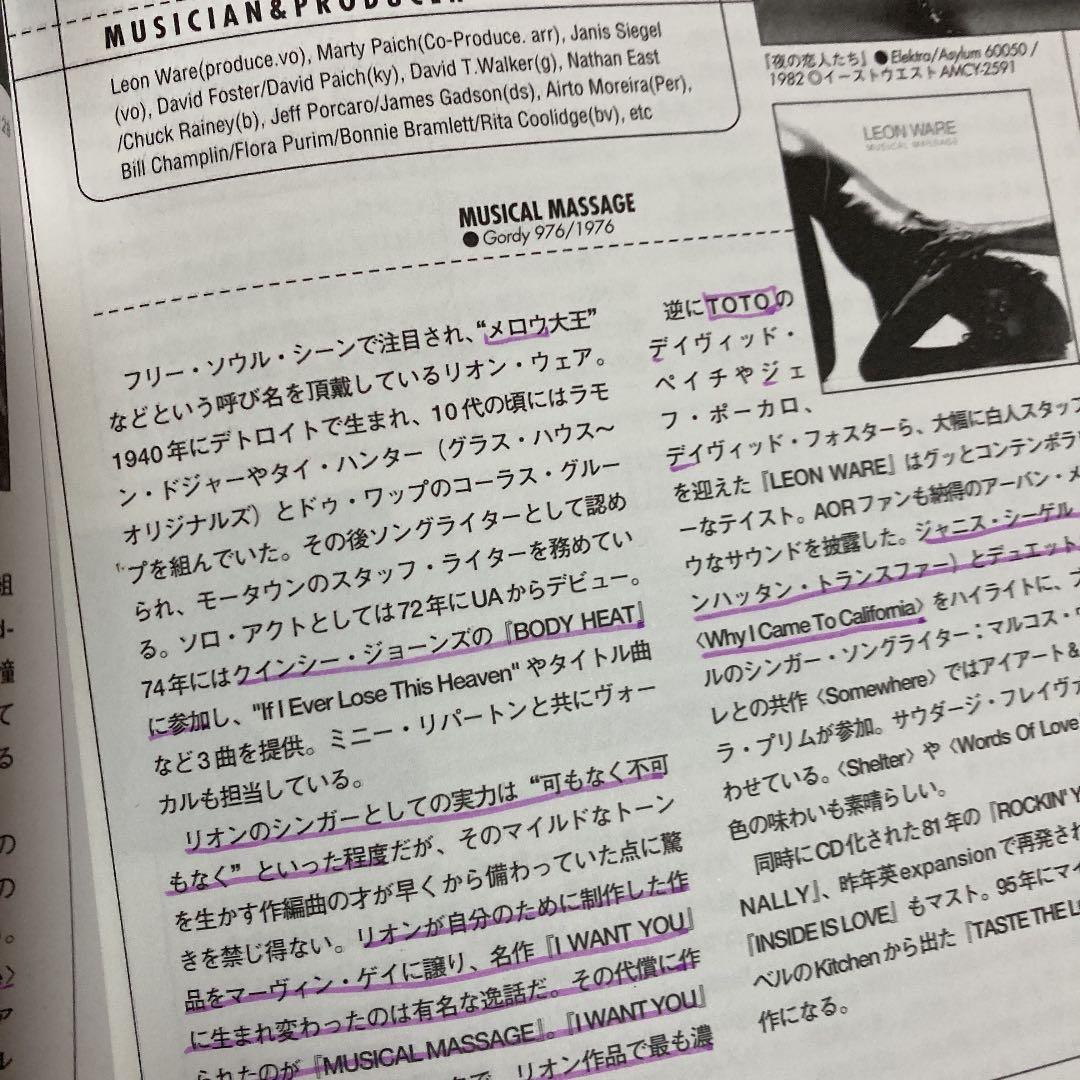 MUSICIAN&PRODUCER
Leon Ware(produce.vo), Marty Paich(Co-Produce. arr), Janis Siegel
(vo), David Foster/David Paich(ky), David T.Walker(g), Nathan East
/Chuck Rainey(b), Jeff Porcaro/James Gadson(ds), Airto Moreira(Per),
Bill Champlin/Flora Purim/Bonnie Bramlett/Rita Coolidge(bv), etc
『夜の恋人たち』●Elektra/Asylum 60050 /
1982◎イーストウエストAMCY-2591
LEON WARE
MUSICAL MASSAGE
MUSICAL MASSAGE
●Gordy 976/1976
フリー・ソウル・シーンで注目され、“メロウ大王”
などという呼び名を頂戴しているリオン・ウェア。
1940年にデトロイトで生まれ、10代の頃にはラモ
ン・ドジャーやタイ・ハンター（グラス・ハウス〜
オリジナルズ）とドゥ・ワップのコーラス・グルー
プを組んでいた。その後ソングライターとして認め
られ、モータウンのスタッフ・ライターを務めてい
る。ソロ・アクトとしては72年にUAからデビュー。
74年にはクインシー・ジョーンズの『BODY HEAT』
に参加し、"If I Ever Lose This Heaven"やタイトル曲
など3曲を提供。ミニー・リパートンと共にヴォー
カルも担当している。
リオンのシンガーとしての実力は“可もなく不可
もなく”といった程度だが、そのマイルドなトーン
を生かす作編曲の才が早くから備わっていた点に驚
きを禁じ得ない。リオンが自分のために制作した作
品をマーヴィン・ゲイに譲り、名作『I WANT YOU』
に生まれ変わったのは有名な逸話だ。その代償に作
られたのが『MUSICAL MASSAGE』。『I WANT YOU』
リオン作品で最も濃
逆にTOTOの
デイヴィッド・
ペイチやジェ
フ・ポーカロ、
デイヴィッド・フォスターら、大幅に白人スタッフ
を迎えた『LEON WARE』はグッとコンテンポラ
ーなテイスト。AORファンも納得のアーバン・メ
ウなサウンドを披露した。ジャニス・シーゲル
ンハッタン・トランスファー）とデュエット
〈Why I Came To California〉をハイライトに、ブ
ルのシンガー・ソングライター：マルコス・
レとの共作〈Somewhere〉ではアイアート&
ラ・プリムが参加。サウダージ・フレイヴァ
わせている。〈Shelter〉や〈Words Of Love
色の味わいも素晴らしい。
同時にCD化された81年の『ROCKIN' Y
NALLY』、昨年英expansionで再発され
『INSIDE IS LOVE』もマスト。95年にマイ
ベルのKitchenから出た『TASTE THE L
作になる。